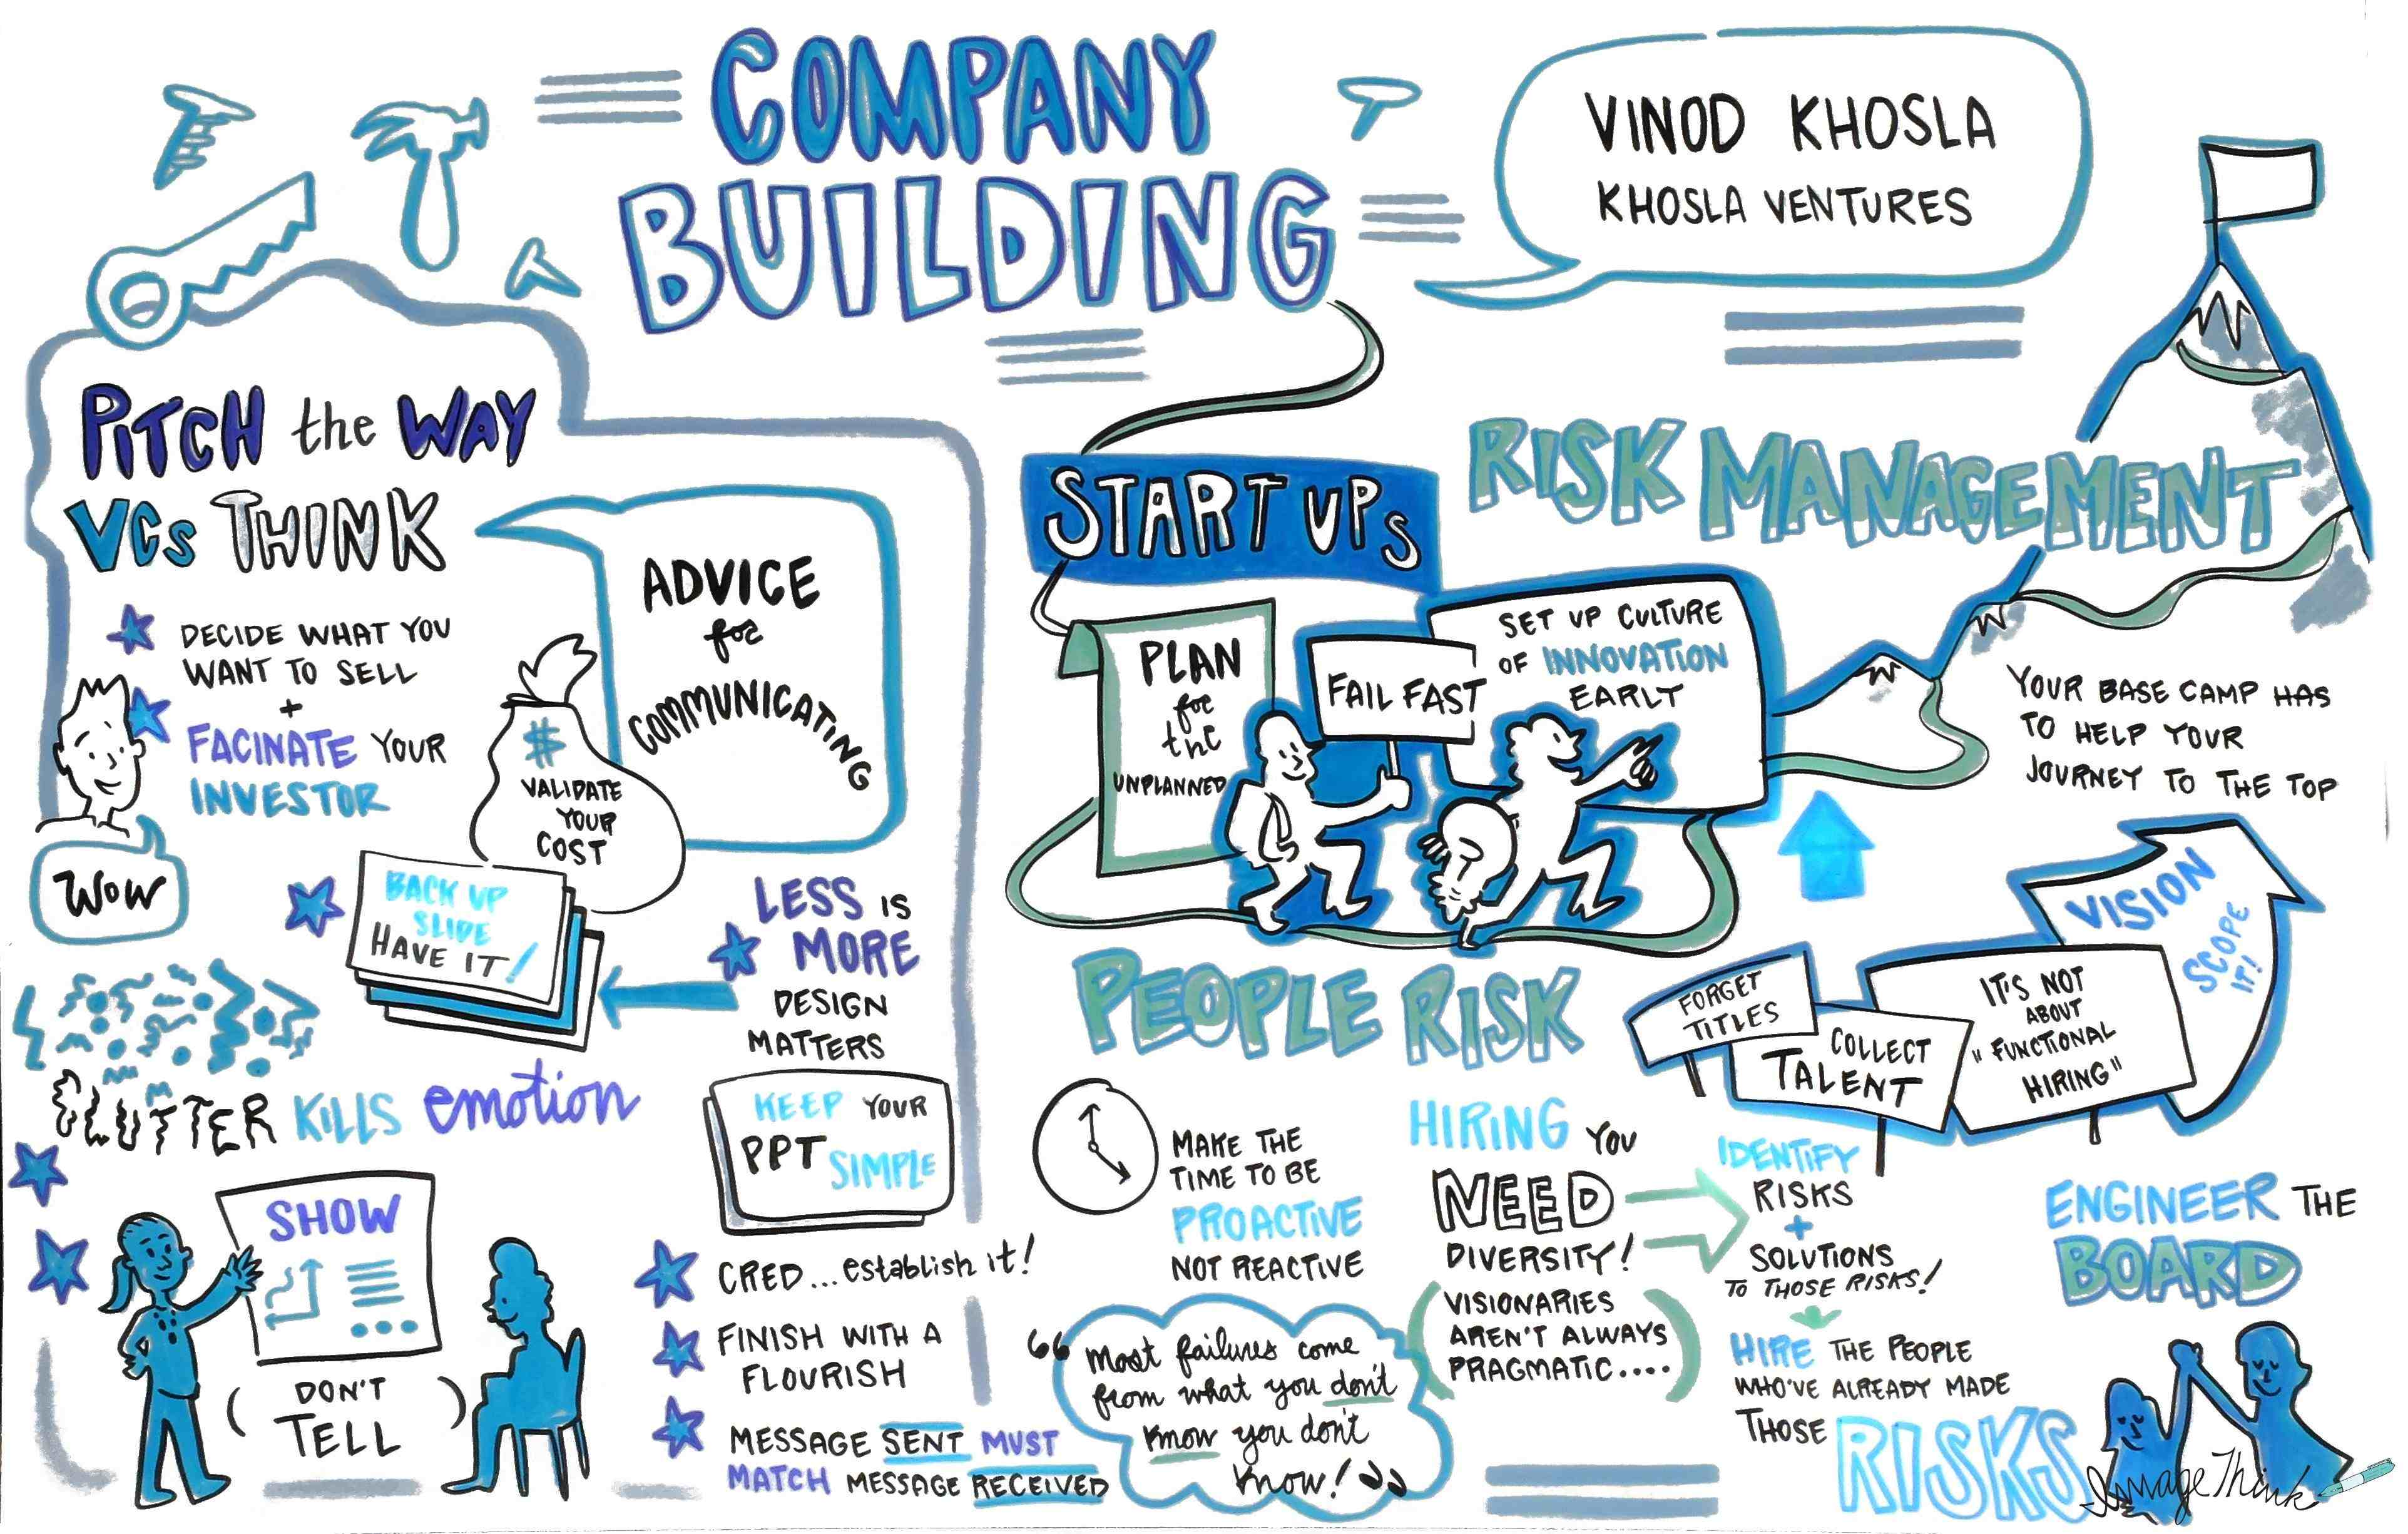 COMPANY
BUILDING
VINOD KHOSLA
KHOSLA VENTURES
PITCH the WAY
VCs THINK
DECIDE WHAT YOU
WANT TO SELL
+
FACINATE YOUR
INVESTOR
WOW
ADVICE
for
COMMUNICATING
$
VALIDATE
YOUR
COST
BACK UP
SLIDE
HAVE IT!
LESS IS
MORE
DESIGN
MATTERS
CLUTTER KILLS emotion
KEEP YOUR
PPT SIMPLE
SHOW
DON'T
TELL
CRED... establish it!
FINISH WITH A
FLOURISH
MESSAGE SENT MUST
MATCH MESSAGE RECEIVED
START UPs
PLAN
for
the
UNPLANNED
FAIL FAST
SET UP CULTURE
OF INNOVATION
EARLY
RISK MANAGEMENT
YOUR BASE CAMP HAS
TO HELP YOUR
JOURNEY TO THE TOP
PEOPLE RISK
MAKE THE
TIME TO BE
PROACTIVE
NOT REACTIVE
HIRING YOU
NEED
DIVERSITY!
VISIONARIES
AREN'T ALWAYS
PRAGMATIC....
"Most failures come
from what you don't
know you don't
know!"
FORGET
TITLES
COLLECT
TALENT
IT'S NOT
ABOUT
"FUNCTIONAL
HIRING"
VISION
SCOPE
IT!
IDENTIFY
RISKS
+
SOLUTIONS
TO THOSE RISKS!
HIRE THE PEOPLE
WHO'VE ALREADY MADE
THOSE RISKS
ENGINEER THE
BOARD
ImageThink